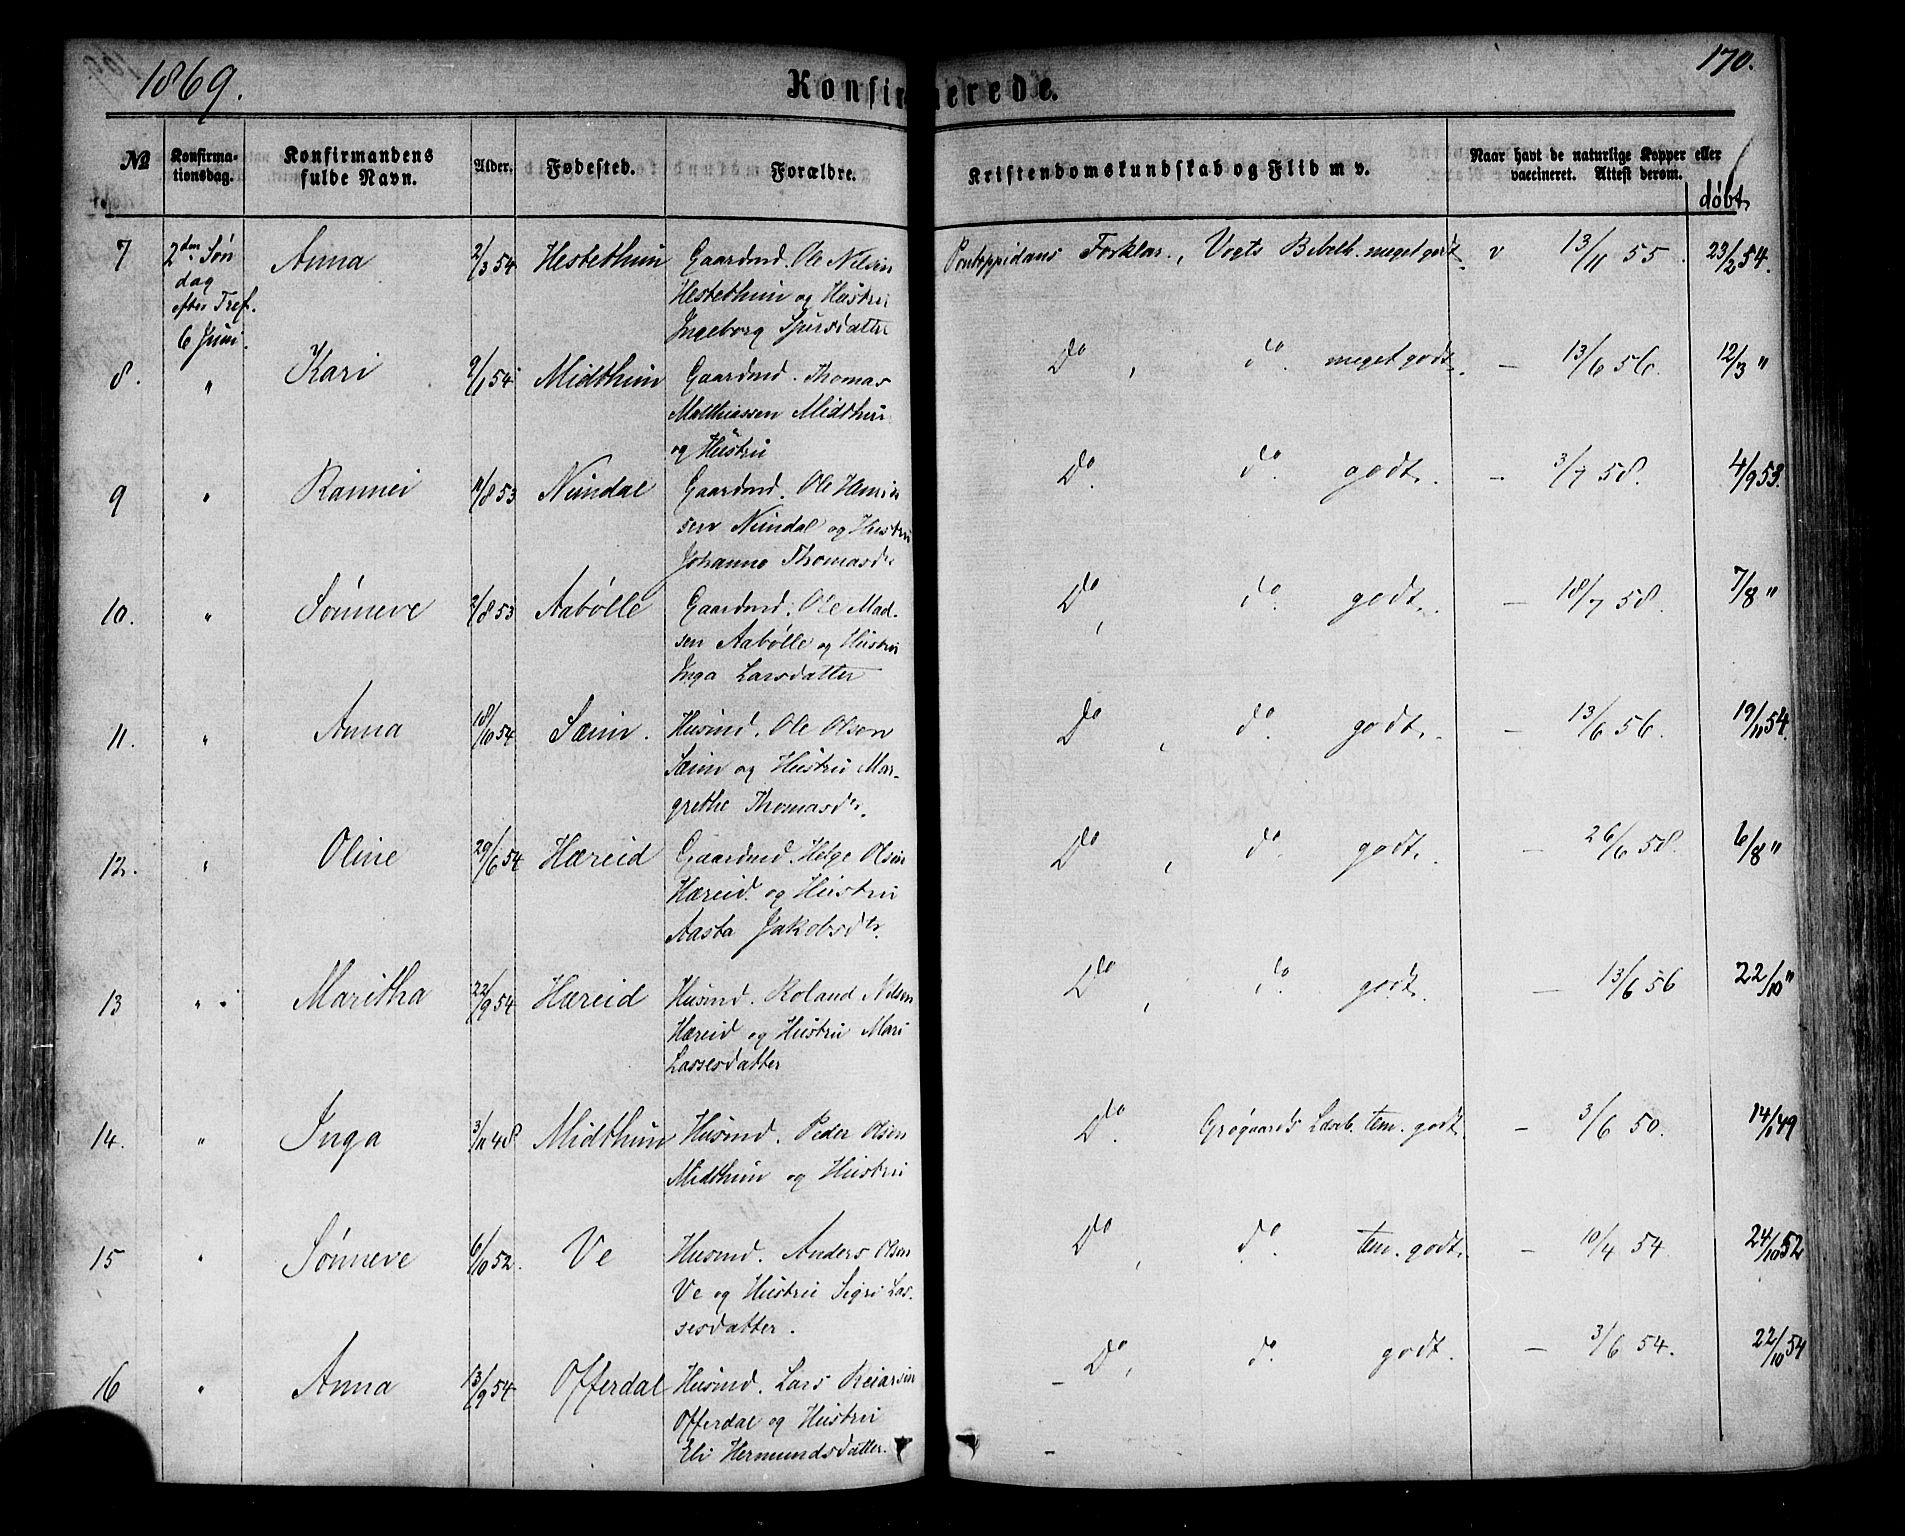 1869.
Konfirmerede.
170.
No
Konfirma-
tionsdag.
Konfirmandens
fulde Navn.
Alder.
Fødested.
Forældre.
Kristendomskundskab og Flid m v.
Naar havt de naturlige Kopper eller
vaccineret. Attest derom.
døbt
7 2den Søn Anna 2/3 54 Hestethun Gaardmd. Ole Nilsen Pontoppidans Forklar., Vogts Bibelh. meget godt. v 13/11 55. 23/2 54.
dag
efter Tref. Hestethun og Hustru
6 Juni. Ingeborg Sjursdatter
8. " Kari 2/1 54 Midthun Gaardmd. Thomas Do, do. meget godt. – 13/6 56. 12/3 "
Matthiassen Midthun
og Hustru
9 " Rannei 11/8 53 Nundal Gaardmd. Ole Henrik Do. do godt. – 3/7 58. 4/9 53.
sen Nundal og Hustru
Johanne Thomasdr
10. " Sønneve 2/8 53 Aabølle Gaardmd. Ole Mad- Do, do. godt. – 18/7 58. 7/8 "
sen Aabølle og Hustru
Inga Larsdatter
11. " Anna 18/10 54 Sæim. Husmd. Ole Olsen Do, do. godt. – 13/6 56. 19/11 54.
Sæim og Hustru Mar-
grethe Thomasdr.
12. " Oline 29/6 54 Hæreid Gaardmd. Helge Olsen Do, do. godt. – 26/6 58. 6/8 "
Hæreid og Hustru
Aasta Jakobsdr.
13 " " Maritha 22/9 54 Hæreid Husmd. Roland Nilsen Do, do. godt. – 13/6 56 22/10 "
Hæreid og Hustru Mari
Lassesdatter
14. " Inga 3/11 48 Midthun Husmd. Peder Olsen Do. Grøgaards Læseb. tem. godt. – 3/6 50. 14/1 49
Midthun og Hustru
15 " Sønneve 6/10 52. Ve Husmd. Anders Olsen Do, do. tem. godt. – 10/4 54. 24/10 52
Ve og Hustru Sigri Las-
sesdatter.
16 " Anna 13/9 54 Offerdal Husmd. Lars Reiarsen Do, do. godt. – 3/6 54. 22/10 54
Offerdal og Hustru
Eli Hermundsdatter.